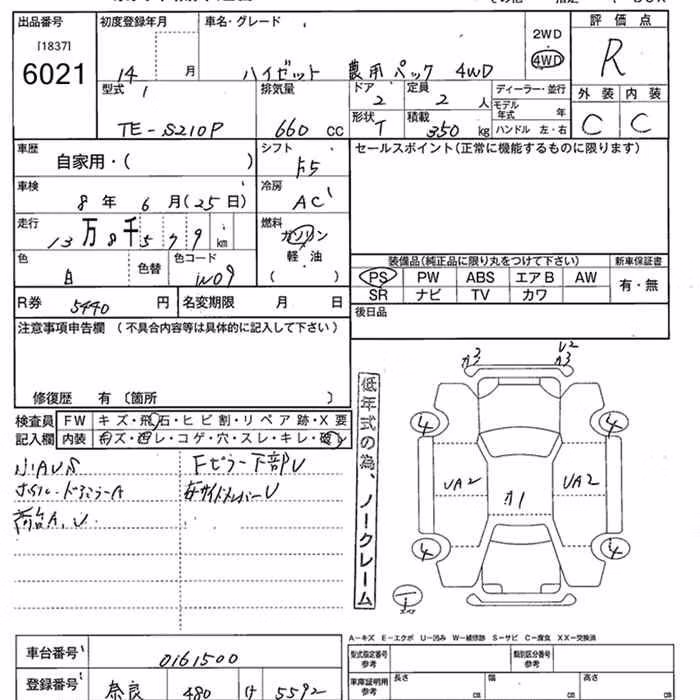 出品番号 初度登録年月 車名・グレード 2WD 評価点
[1837]
6021 14 月 ハイゼット 農用パック 4WD 4WD R
型式 排気量 ドア 定員 ディーラー・並行 外装 内装
2 2 人 モデル年式 年
TE-S210P 660 cc 形状 T 積載 350 kg ハンドル 左・右 C C
車歴 自家用・( ) シフト F5 セールスポイント(正常に機能するものに限ります)
車検 8年 6月(25日) 冷房 AC
走行 13万8千579 km 燃料 ガソリン
軽油
( )
色 白 色替 色コード W09
装備品(純正品に限り丸をつけて下さい) 新車保証書
PS PW ABS エアB AW 有・無
SR ナビ TV カワ
R券 5440 円 名変期限 月 日 後日品
注意事項申告欄 (不具合内容等は具体的に記入して下さい)
修復歴 有 〔箇所 〕
検査員 FW キズ・飛石・ヒビ割・リペア跡・X要
記入欄 内装 キズ・西レ・コゲ・穴・スレ・キレ・破レ
小AUS Fピラー下部U
ホイル・ドアミラーA 左サイドメンバーU
荷台A,U
低年式の為、ノークレーム
カ3 U2
カ3
4 4
UA2 カ1 UA2
4 4
A-キズ E-エクボ U-凹み W-補修跡 S-サビ C-腐食 XX-交換済
車台番号 0161500
型式指定番号 参考 類別区分番号 参考
登録番号 奈良 480 け 5592
車庫証明用 参考 長さ cm 幅 cm 高さ cm